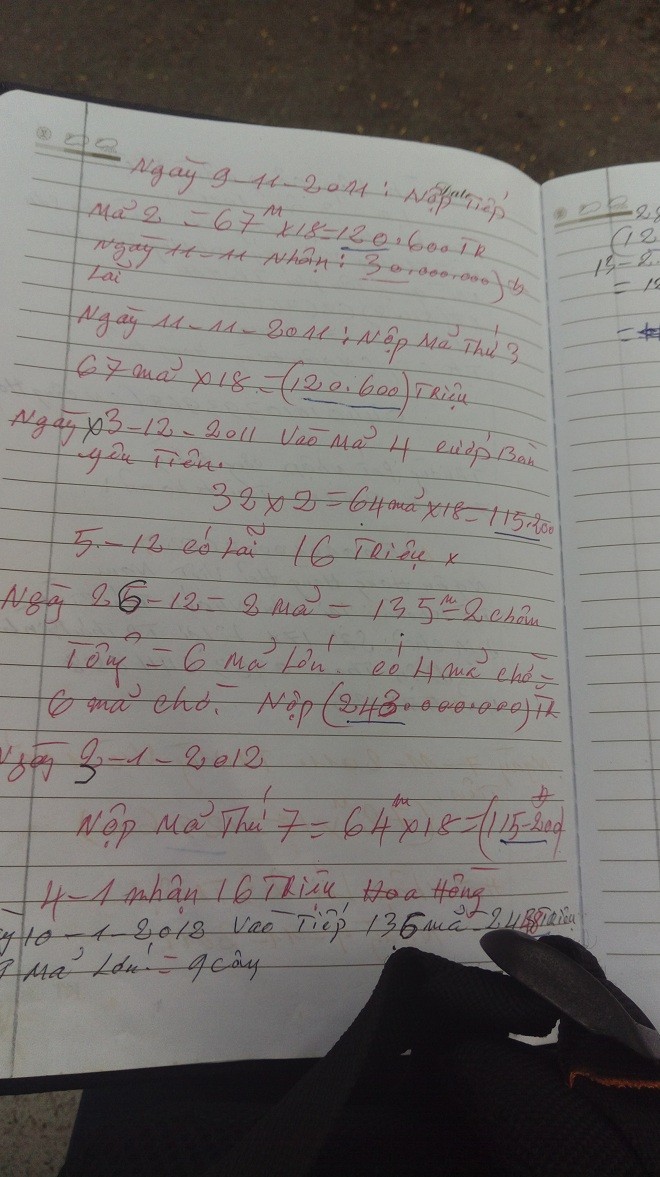 Ngày 9-11-2011: Nộp Tiếp
Mả 2 = 67 M x18=120.600 TR
Ngày 11-11 Nhận: 30.000.000)đ
Lãi
Ngày 11-11-2011: Nộp Mả Thứ 3
67 mả x18=(120.600) Triệu
Ngày x3-12-2011 Vào Mả 4 cướp Bàn
yêu Tiên.
32x2=64 mả x18=115.200
5-12 có Lãi 16 Triệu x
Ngày 26-12=2 Mả = 135 m=2 chân
Tổng = 6 Mả Lớn. có 4 mả chó=
6 mả chó. Nộp (243.000.000) TR
Ngày 3-1-2012
Nộp Mả Thứ 7=64 m x18=(115-200) đ
4-1 nhận 16 Triệu Hoa Hồng
y 10-1-2012 Vào Tiếp 136 mả=2448 Triệu
9 Mả Lớn = 9 cây
28
(12
13-2.
= 12
=